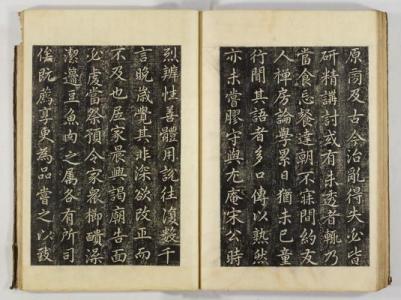 原及古今治亂得失必皆
研精講討或有未透者輒乃
當食忘餐達朝不寐間約友
人禅房論學累日猶未已童
行聞其語者多口傳以熟然
亦未嘗膠守與尤庵宋公時
烈辨性善體用說往復數千
言晚歲覺其非深欲改正而
不及也居家晨興謁廟告面
必虔當祭預令家衆櫛靧澡
潔籩豆魚肉之属各有所司
俟既薦享更為品嘗之以致